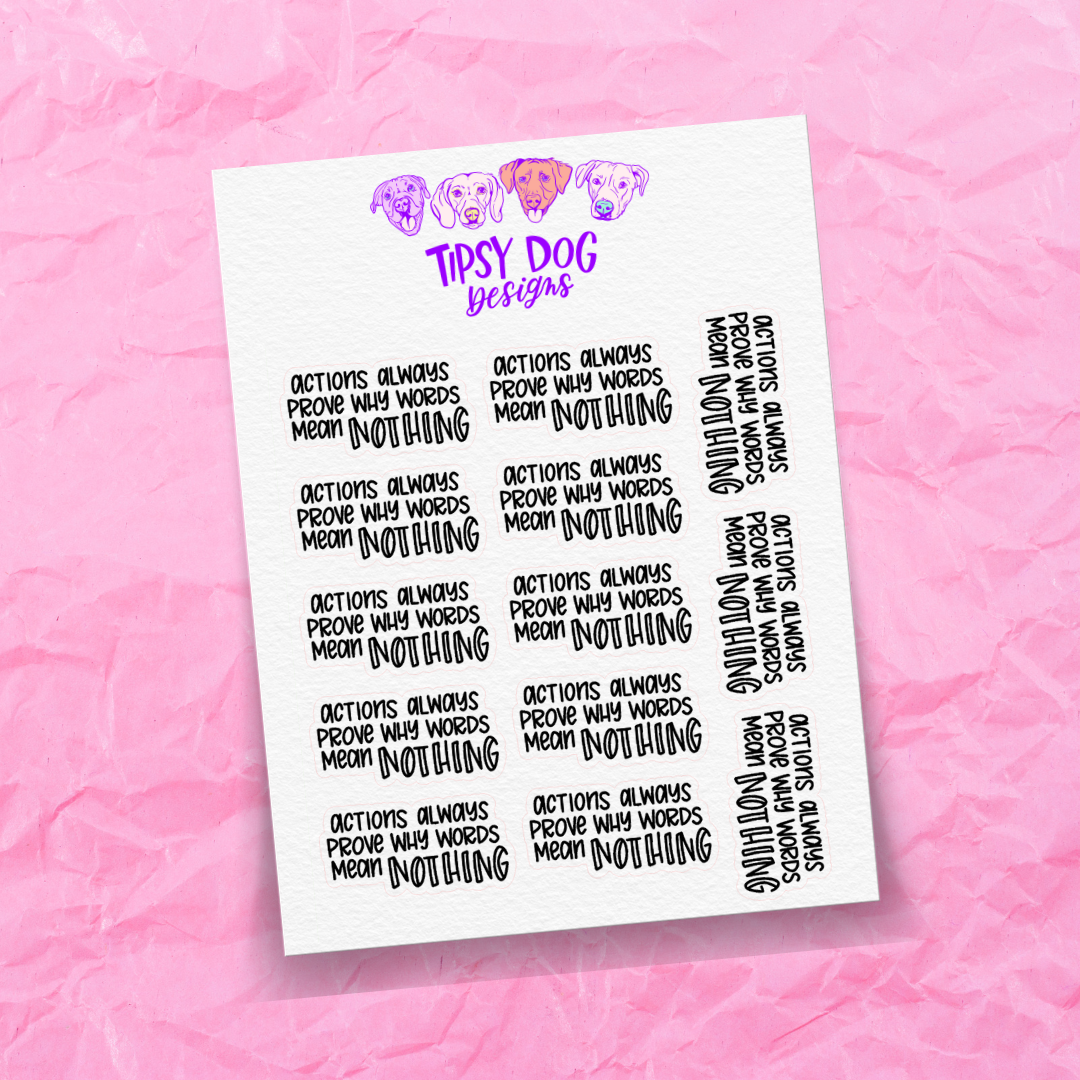 TIPSY DOG
Designs
actions always
PROVE WHY WORDS
mean NOTHING
actions always
PROVE WHY WORDS
mean NOTHING
actions always
PROVE WHY WORDS
mean NOTHING
actions always
PROVE WHY WORDS
mean NOTHING
actions always
PROVE WHY WORDS
mean NOTHING
actions always
PROVE WHY WORDS
mean NOTHING
actions always
PROVE WHY WORDS
mean NOTHING
actions always
PROVE WHY WORDS
mean NOTHING
actions always
PROVE WHY WORDS
mean NOTHING
actions always
PROVE WHY WORDS
mean NOTHING
actions always
PROVE WHY WORDS
mean NOTHING
actions always
PROVE WHY WORDS
mean NOTHING
actions always
PROVE WHY WORDS
mean NOTHING